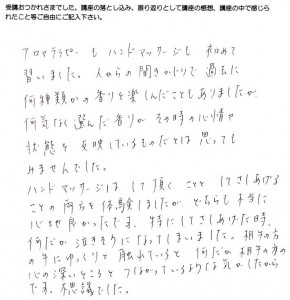 受講おつかれさまでした。講座の落とし込み、振り返りとして講座の感想、講座の中で感じら
れたこと等ご自由にご記入下さい。
アロマテラピーもハンドマッサージも初めて
習いました。人からの聞きかじりで過去に
何種類かの香りを楽しんだこともありましたが、
何気なく選んだ香りがその時の心情や
状態を反映しているものだとは思っても
みませんでした。
ハンドマッサージはして頂くこととしてさしあげる
ことの両方を体験しましたが、どちらも本当に
心地良かったです。特にしてさしあげた時、
何だか泣きそうになってしまいました。相手の方
の手にゆっくりと触れていると何だか相手の方の
心の深いところとつながっているような気がしたから
です。不思議でした。